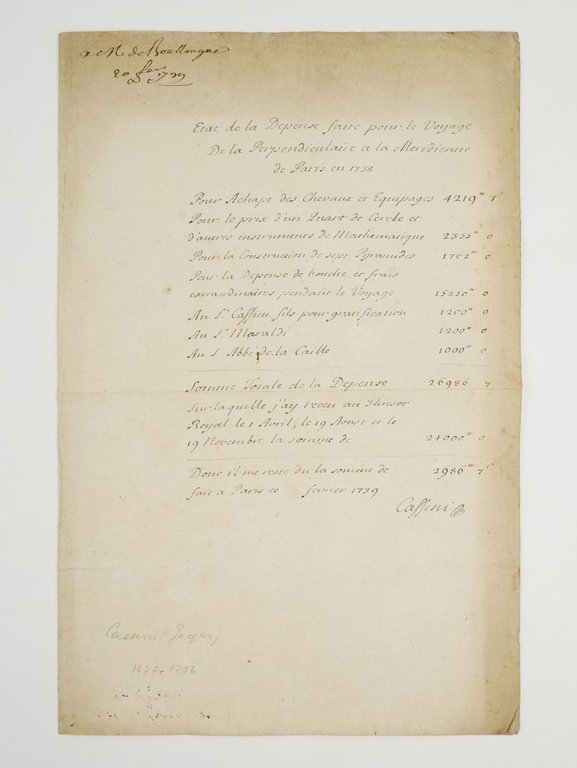 a M de Boullongne
20 fev 1739
Etat de la Depense faite pour le Voyage
De la Perpendiculaire a la Meridienne
de Paris en 1738
Pour Achapt des Chevaux et Equipages 4219ᵗᵗ 7ˢ
Pour le prix d'un Quart de Cercle et
d'autres instruments de Mathematique 2355ᵗᵗ 0
Pour la Construction de sept Pyramides 1762ᵗᵗ 0
Pour la Depense de bouche et frais
extraordinaires pendant le Voyage 15250ᵗᵗ 0
Au Sʳ Cassini fils pour gratification 1200ᵗᵗ 0
Au Sʳ Maraldi 1200ᵗᵗ 0
Au S. Abbé de la Caille 1000ᵗᵗ 0
Somme Totale de la Depense 26986 7
Sur laquelle j'ay receu au Thresor
Royal le 1 Avril, le 19 Aoust et le
19 Novembre la somme de 24000ᵗᵗ 0
Donc il me reste du la somme de 2986ᵗᵗ 7ˢ
fait a Paris ce fevrier 1739
Cassini
Cassini (Jacques)
1677-1756